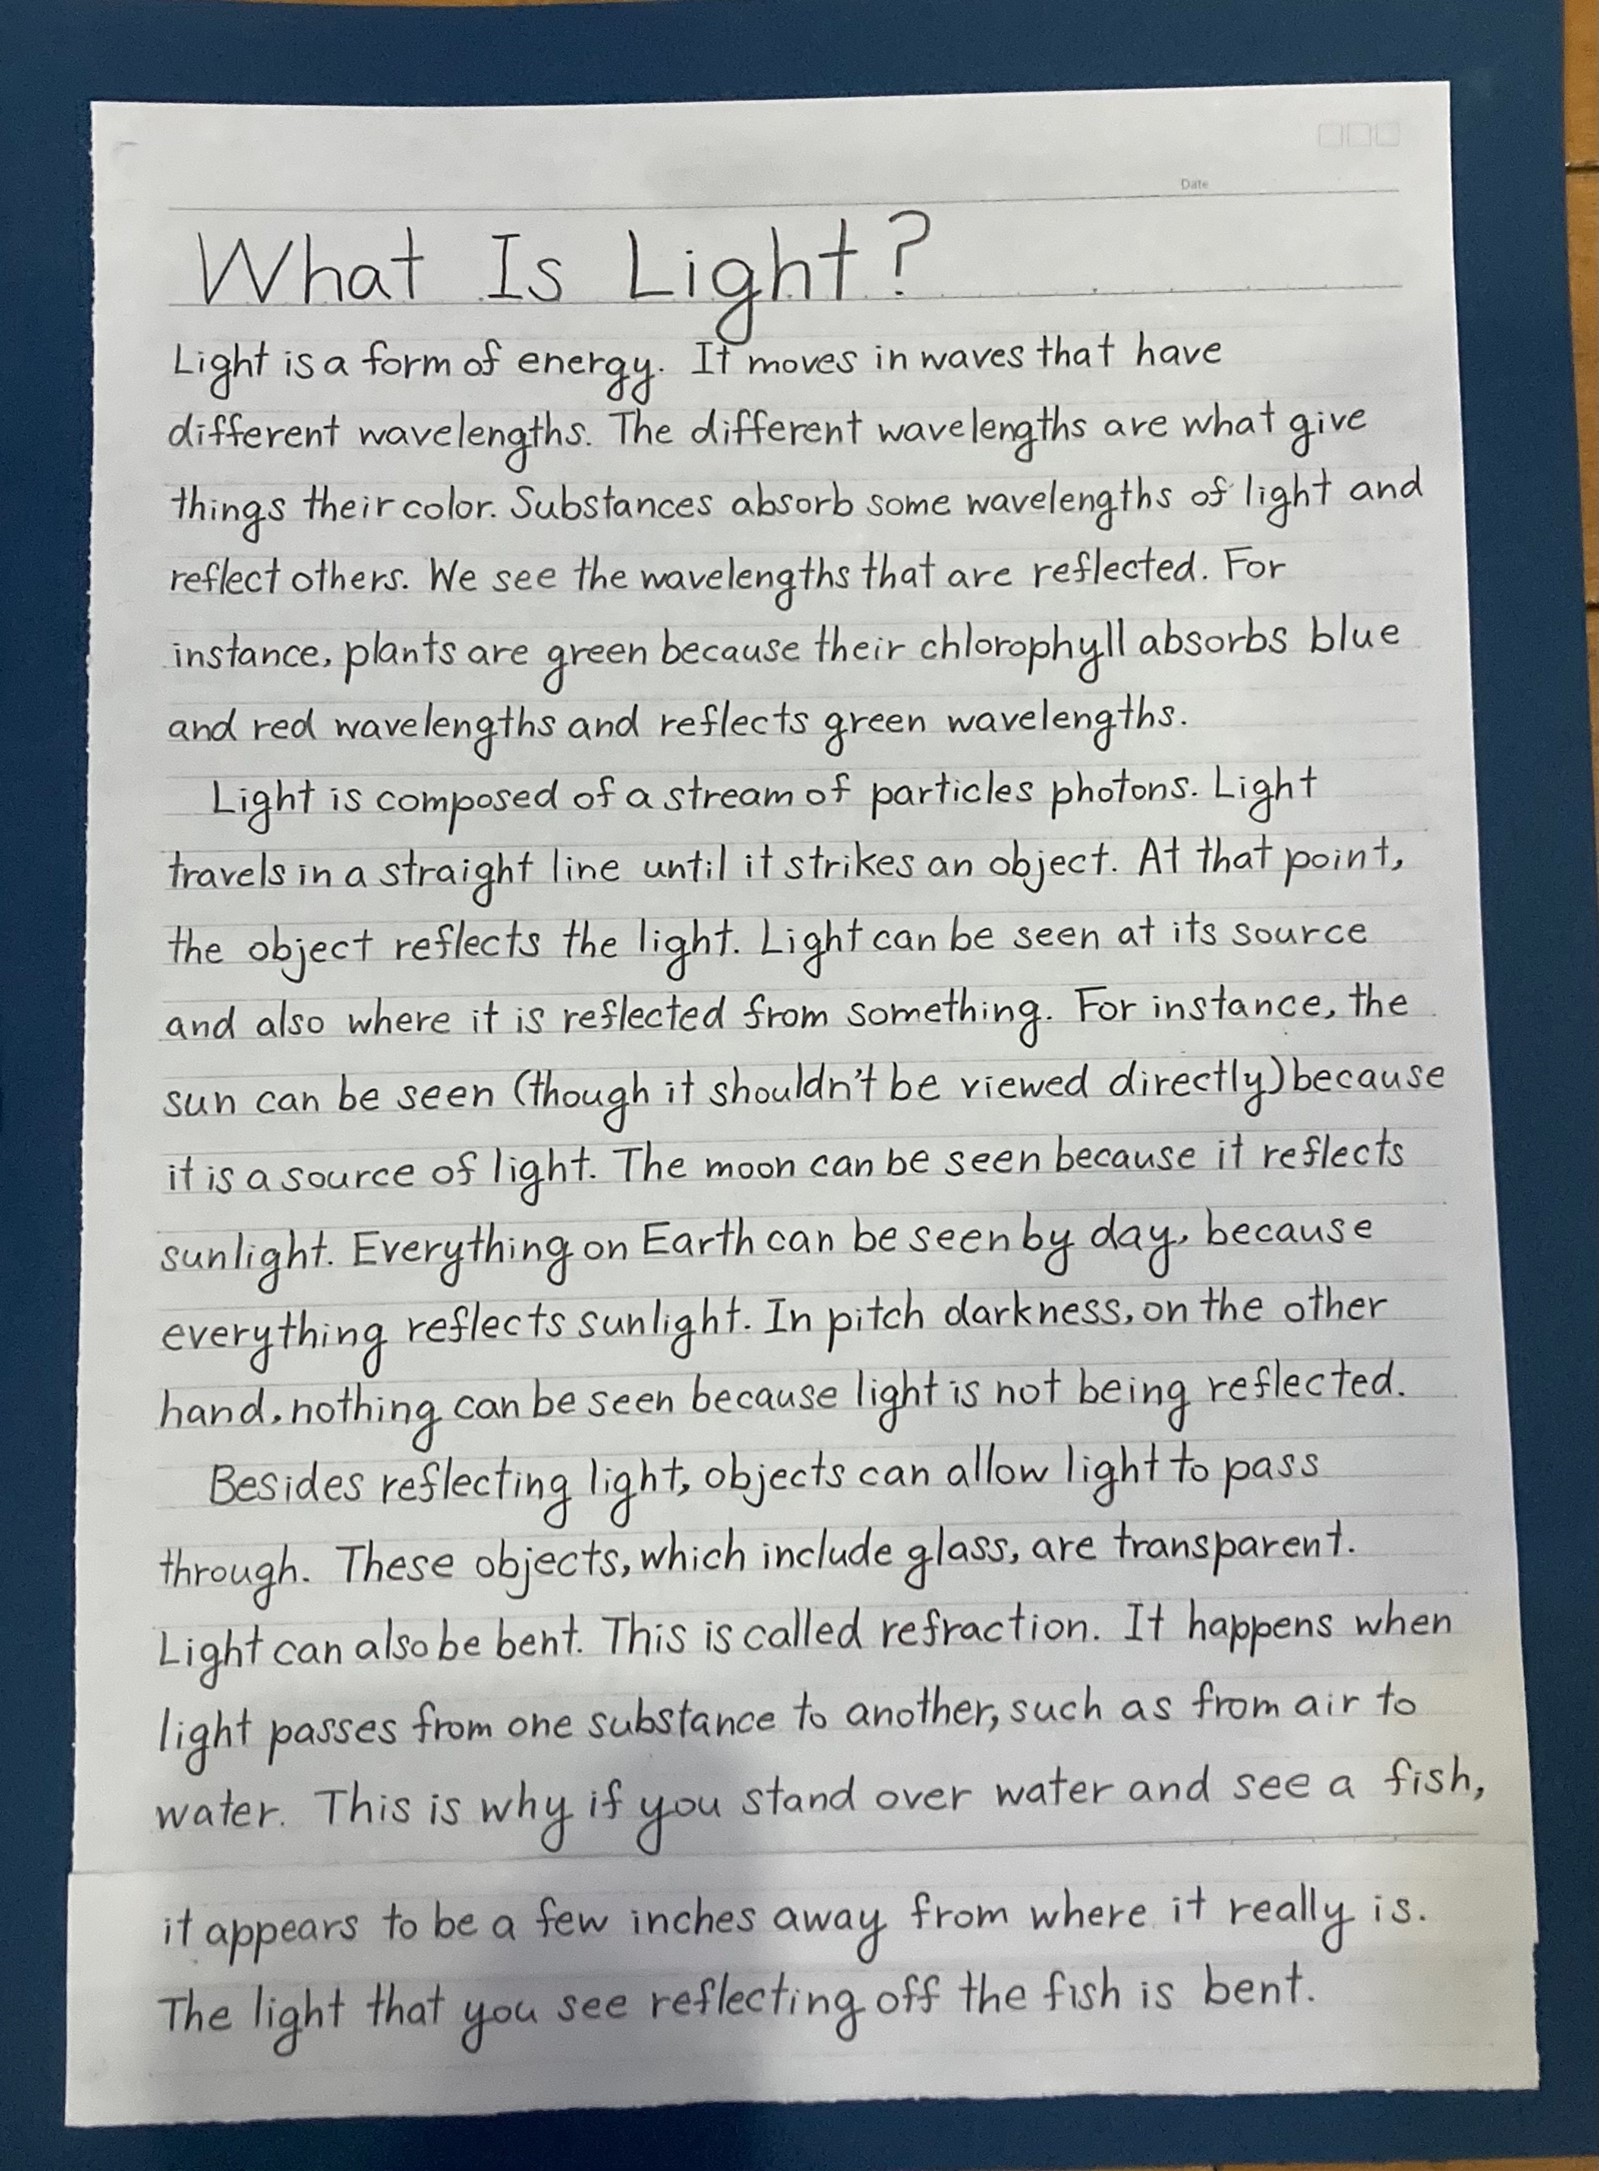 Date
What Is Light?
Light is a form of energy. It moves in waves that have
different wavelengths. The different wavelengths are what give
things their color. Substances absorb some wavelengths of light and
reflect others. We see the wavelengths that are reflected. For
instance, plants are green because their chlorophyll absorbs blue
and red wavelengths and reflects green wavelengths.
Light is composed of a stream of particles photons. Light
travels in a straight line until it strikes an object. At that point,
the object reflects the light. Light can be seen at its source
and also where it is reflected from something. For instance, the
sun can be seen (though it shouldn't be viewed directly) because
it is a source of light. The moon can be seen because it reflects
sunlight. Everything on Earth can be seen by day, because
everything reflects sunlight. In pitch darkness, on the other
hand, nothing can be seen because light is not being reflected.
Besides reflecting light, objects can allow light to pass
through. These objects, which include glass, are transparent.
Light can also be bent. This is called refraction. It happens when
light passes from one substance to another, such as from air to
water. This is why if you stand over water and see a fish,
it appears to be a few inches away from where it really is.
The light that you see reflecting off the fish is bent.